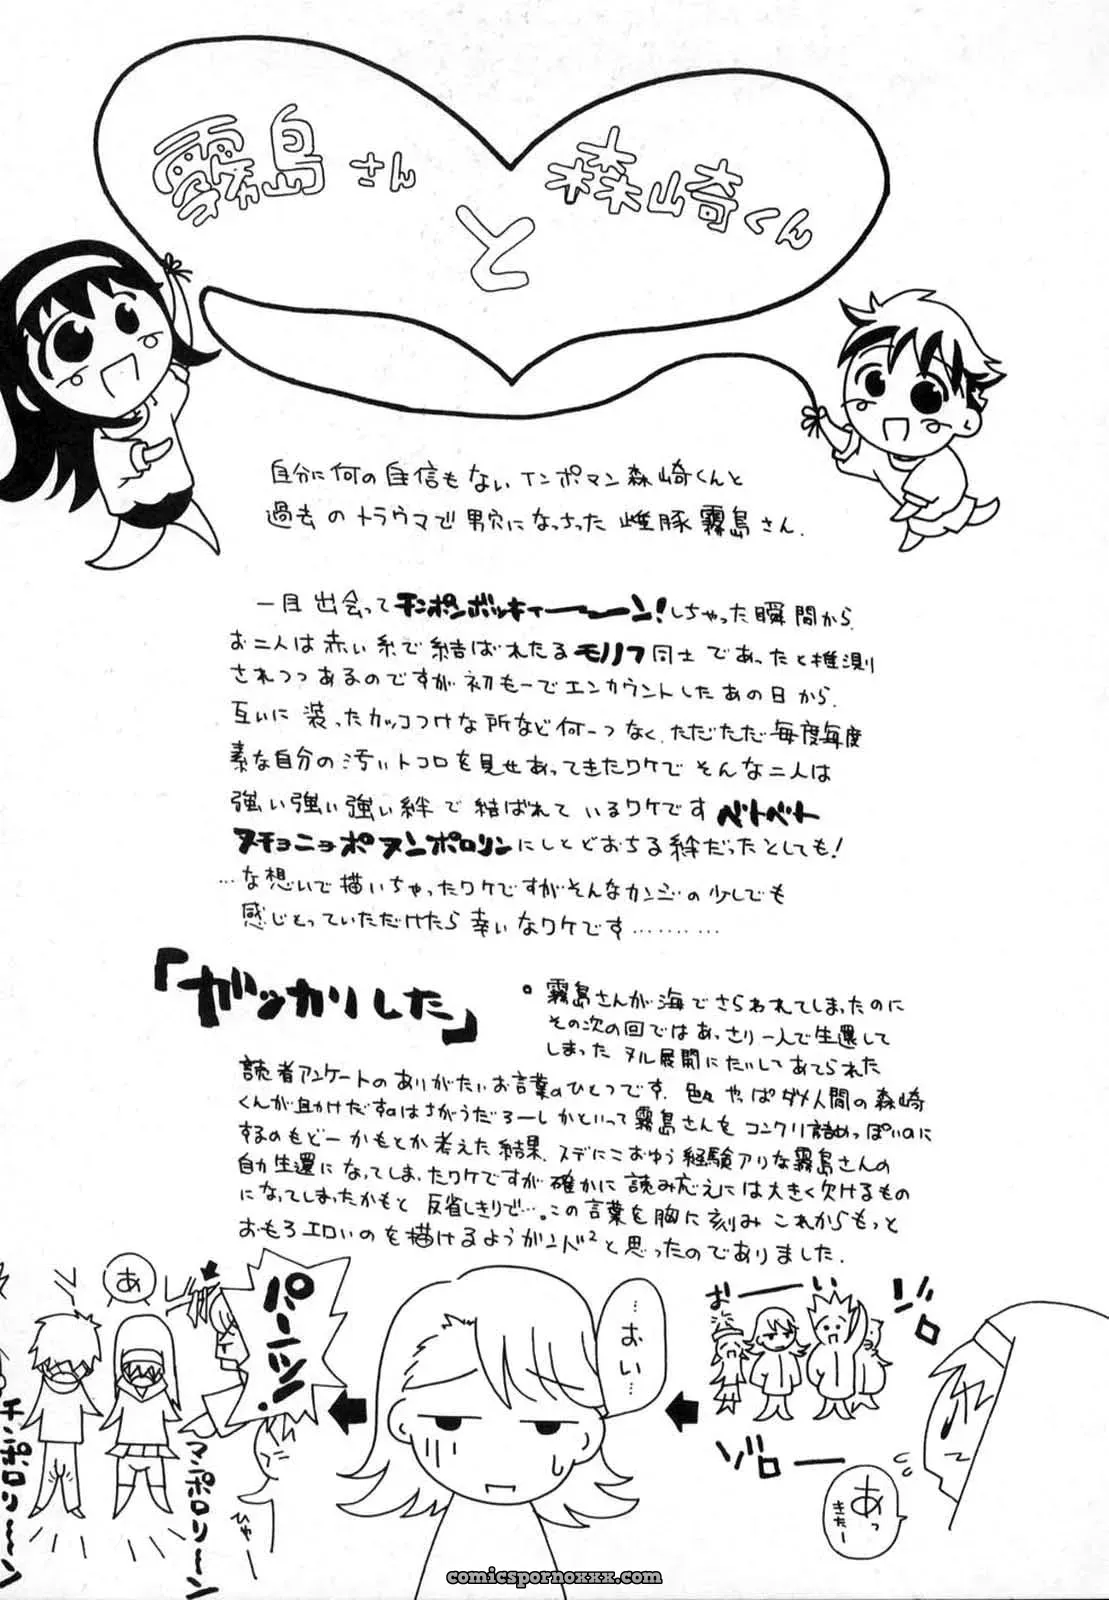 霧島さん
と
森崎くん
自分に何の自信もないインポマン森崎くんと
過去のトラウマで男穴になっちった雌豚霧島さん.
一目出会ってチンポンボッキィーーーン!しちゃった瞬間から.
お二人は赤い糸で結ばれたるモノノフ同士であったと推測
されつつあるのですが初もーでエンカウントしたあの日から.
互いに装ったカッコつけな所など何一つなく、ただただ毎度毎度
素な自分の汚いトコロを見せあってきたワケでそんな二人は
強い強い強い絆で結ばれているワケですベトベト
ヌチョニョポヌンポロリンにしとどおちる絆だったとしても!
…な想いで描いちゃったワケですがそんなカンジの少しでも
感じとっていただけたら幸いなワケです………
「ガッカリした」
。霧島さんが海でさらわれてしまったのに
その次の回ではあっさり一人で生還して
しまったヌル展開にたいしてあてられた
読者アンケートのありがたいお言葉のひとつです.色々やっぱダメ人間の森崎
くんが助けだすのはちがうだろーしかといって霧島さんをコンクリ詰めっぽいのに
するのもどーかもとか考えた結果、スデにこおゆう経験アリな霧島さんの
自力生還になってしまったワケですが確かに読み応えには大きく欠けるもの
になってしまったかもと反省しきりで…。この言葉を胸に刻みこれからもっと
おもろエロいのを描けるようがンバ²と思ったのでありました.
おーーい
ゾロ
ゾロー
あっ
きたー
…おい…
パーンッ!
ひゃー
あ
マンポロリーン
チンポロリーン
comicspornoxxx.com